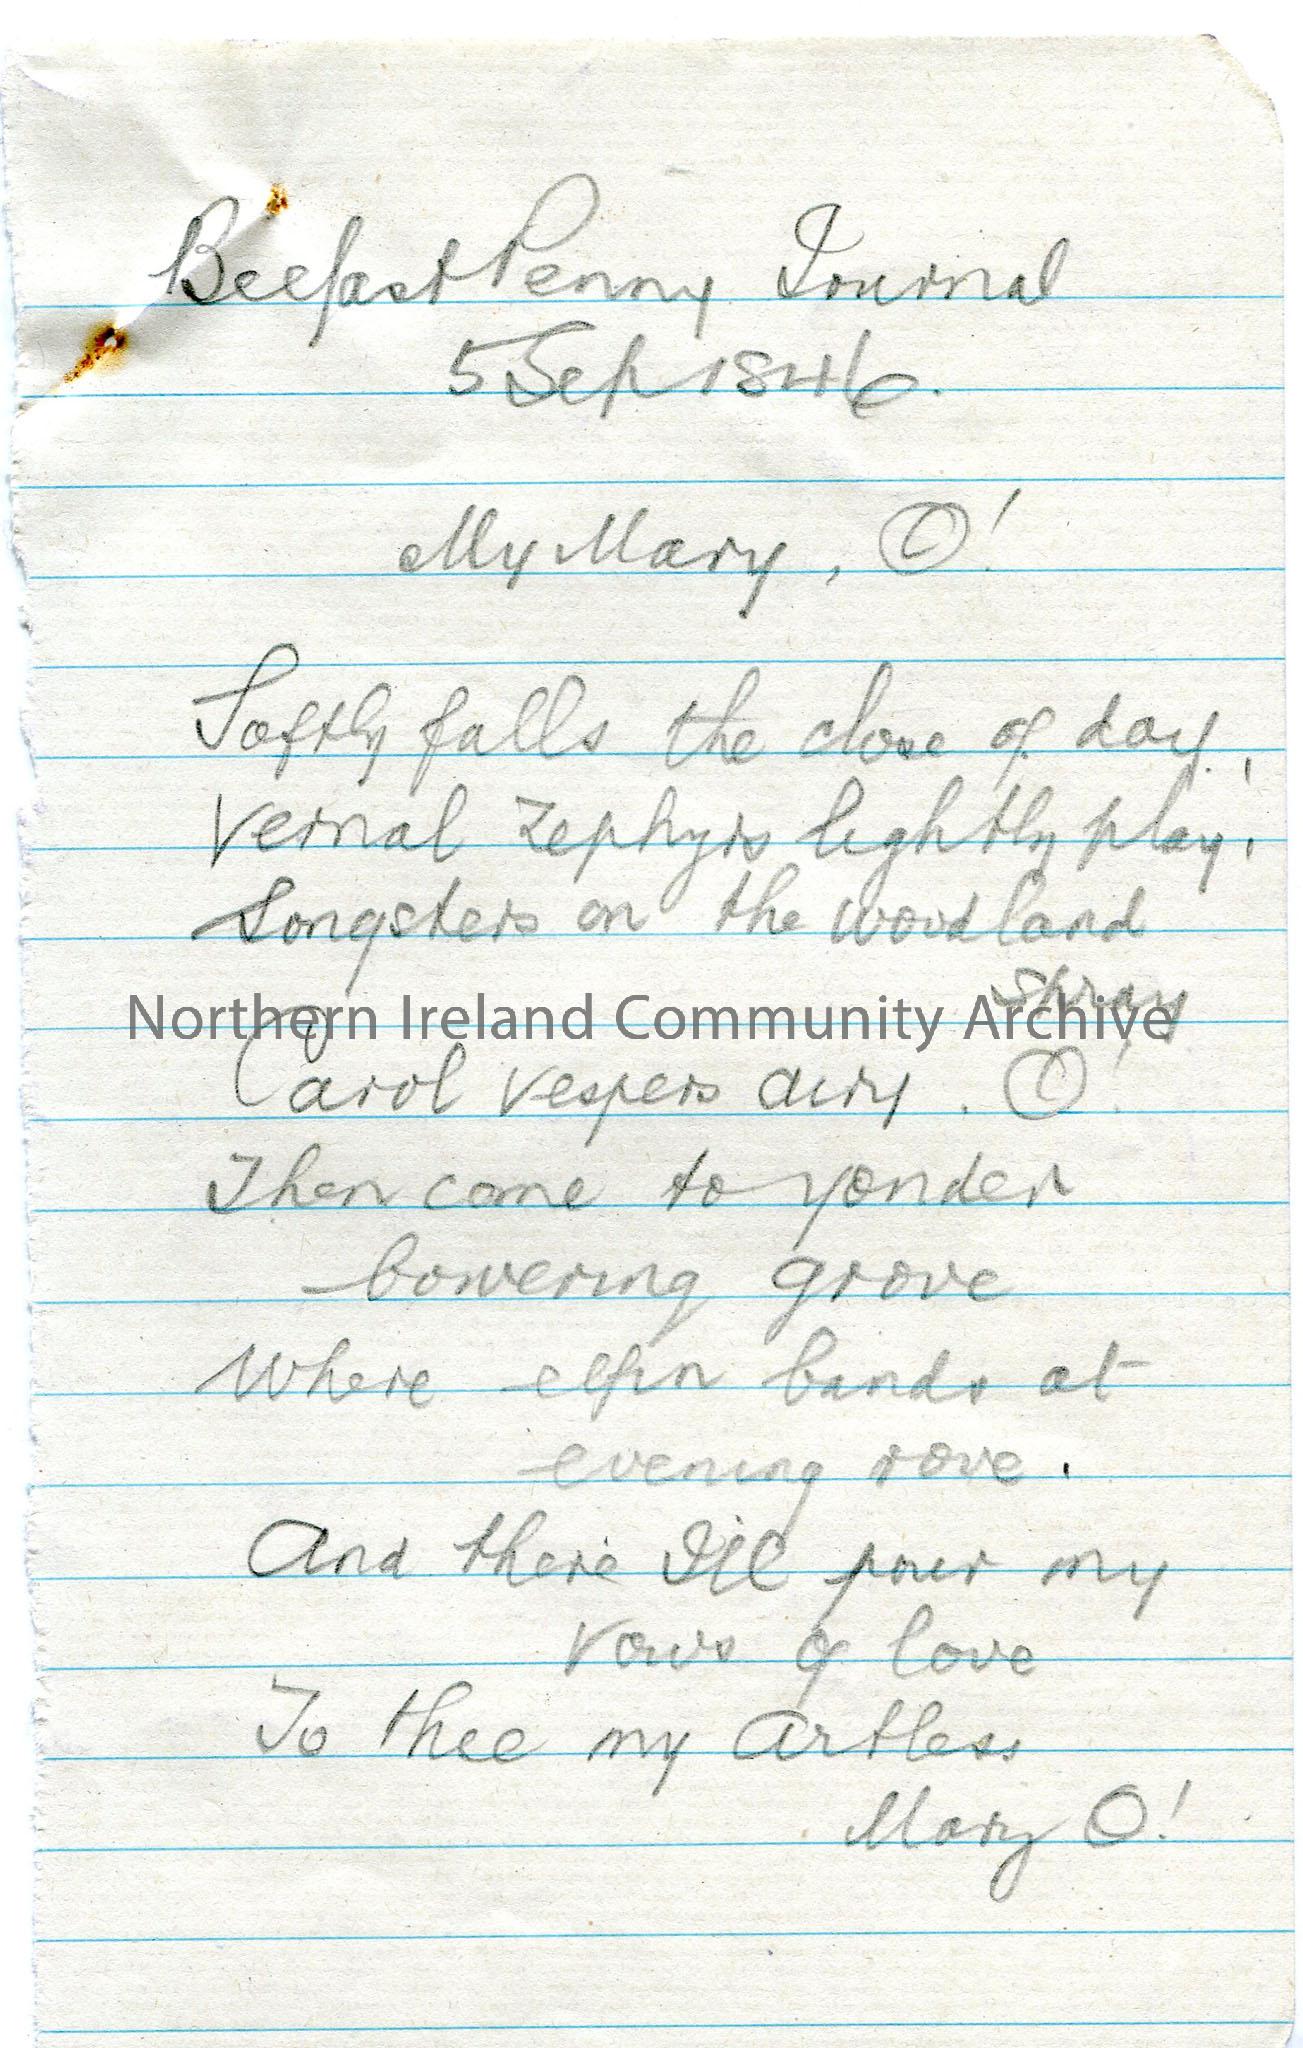 Belfast Penny Journal
5 Sep 1846.
My Mary, O!
Softly falls the close of day,
Vernal Zephyrs lightly play,
Songsters on the woodland
spray
Northern Ireland Community Archive
Carol vespers airy, O!
Then come to yonder
bowering grove
Where elfin bands at
evening rove.
And there I'll pour my
vows of love
To thee my Artless
Mary O!